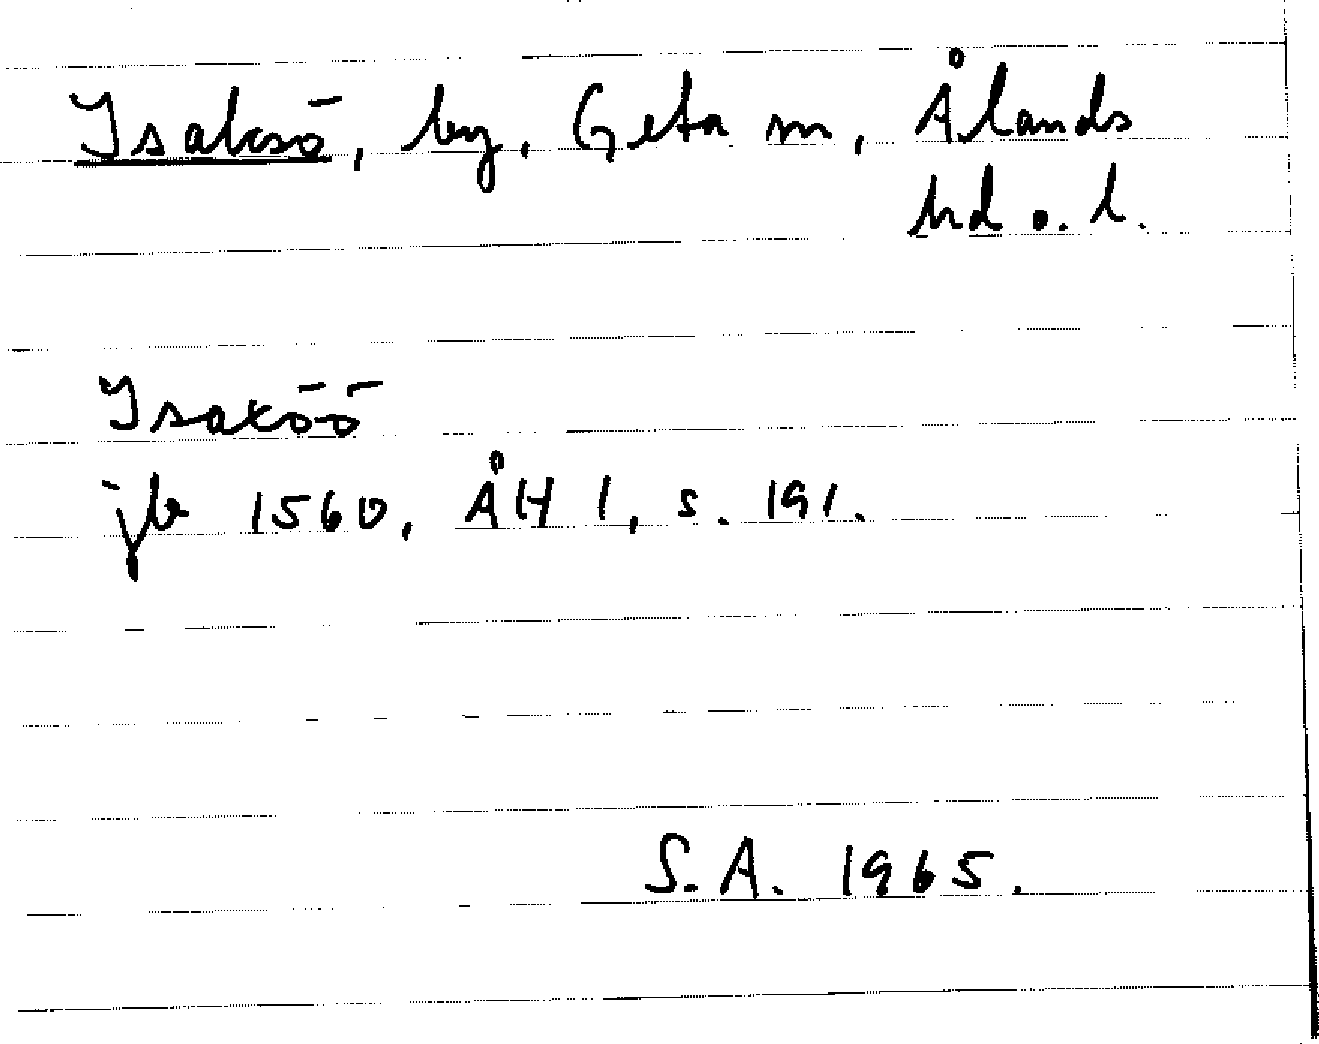 Isaksö, by, Geta sn, Ålands
hd o. l.
Isaköö
jb 1560, ÅH 1, s. 191.
S.A. 1965.